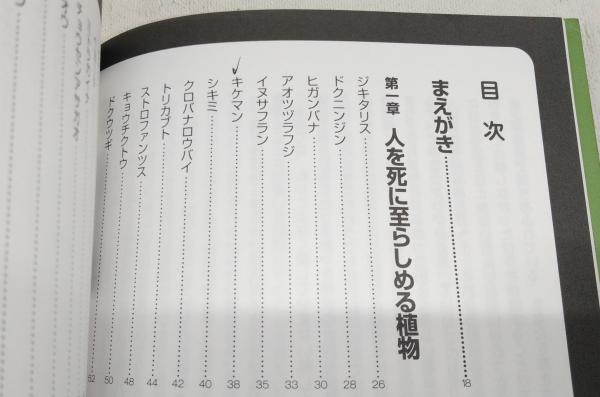 目次
まえがき 18
第一章 人を死に至らしめる植物
ジキタリス 26
ドクニンジン 28
ヒガンバナ 30
アオツヅラフジ 33
イヌサフラン 35
キケマン 38
シキミ 40
クロバナロウバイ 42
トリカブト 44
ストロファンツス 48
キョウチクトウ 50
ドクウツギ 52